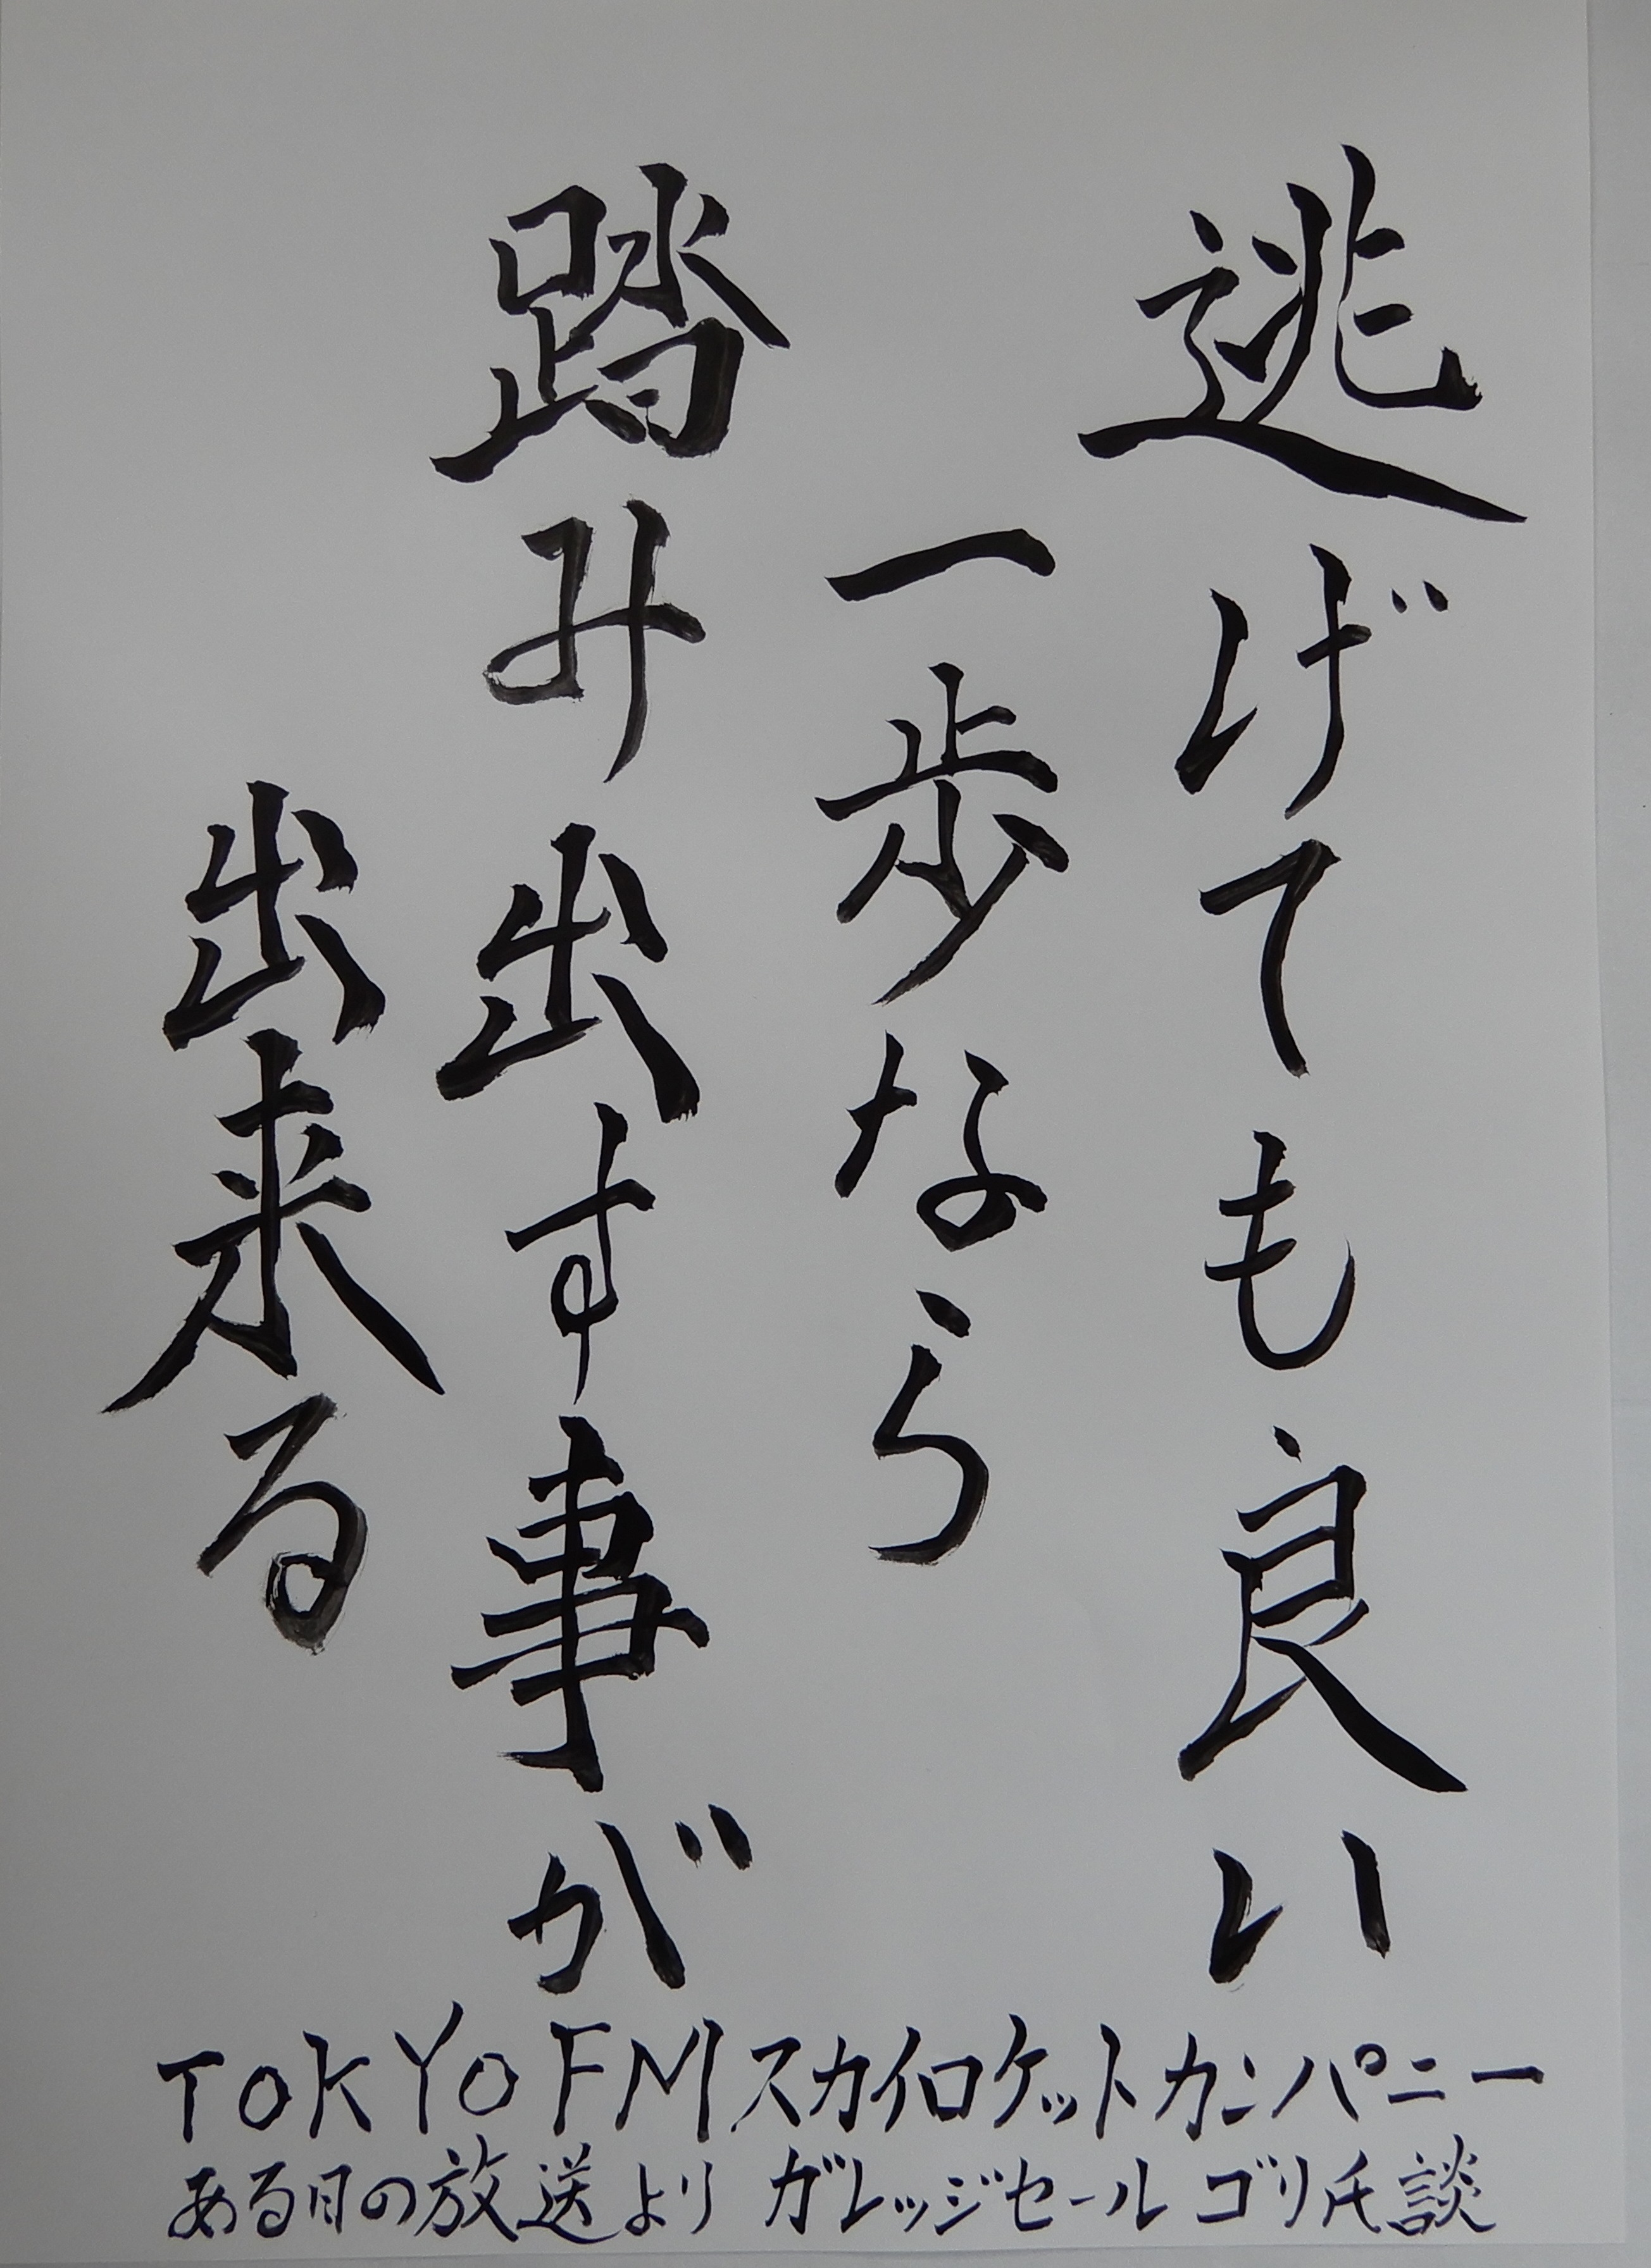 逃げても良い
一歩なら
踏み出す事が
出来る
TOKYO FM スカイロケットカンパニー
ある日の放送より ガレッジセール ゴリ氏談